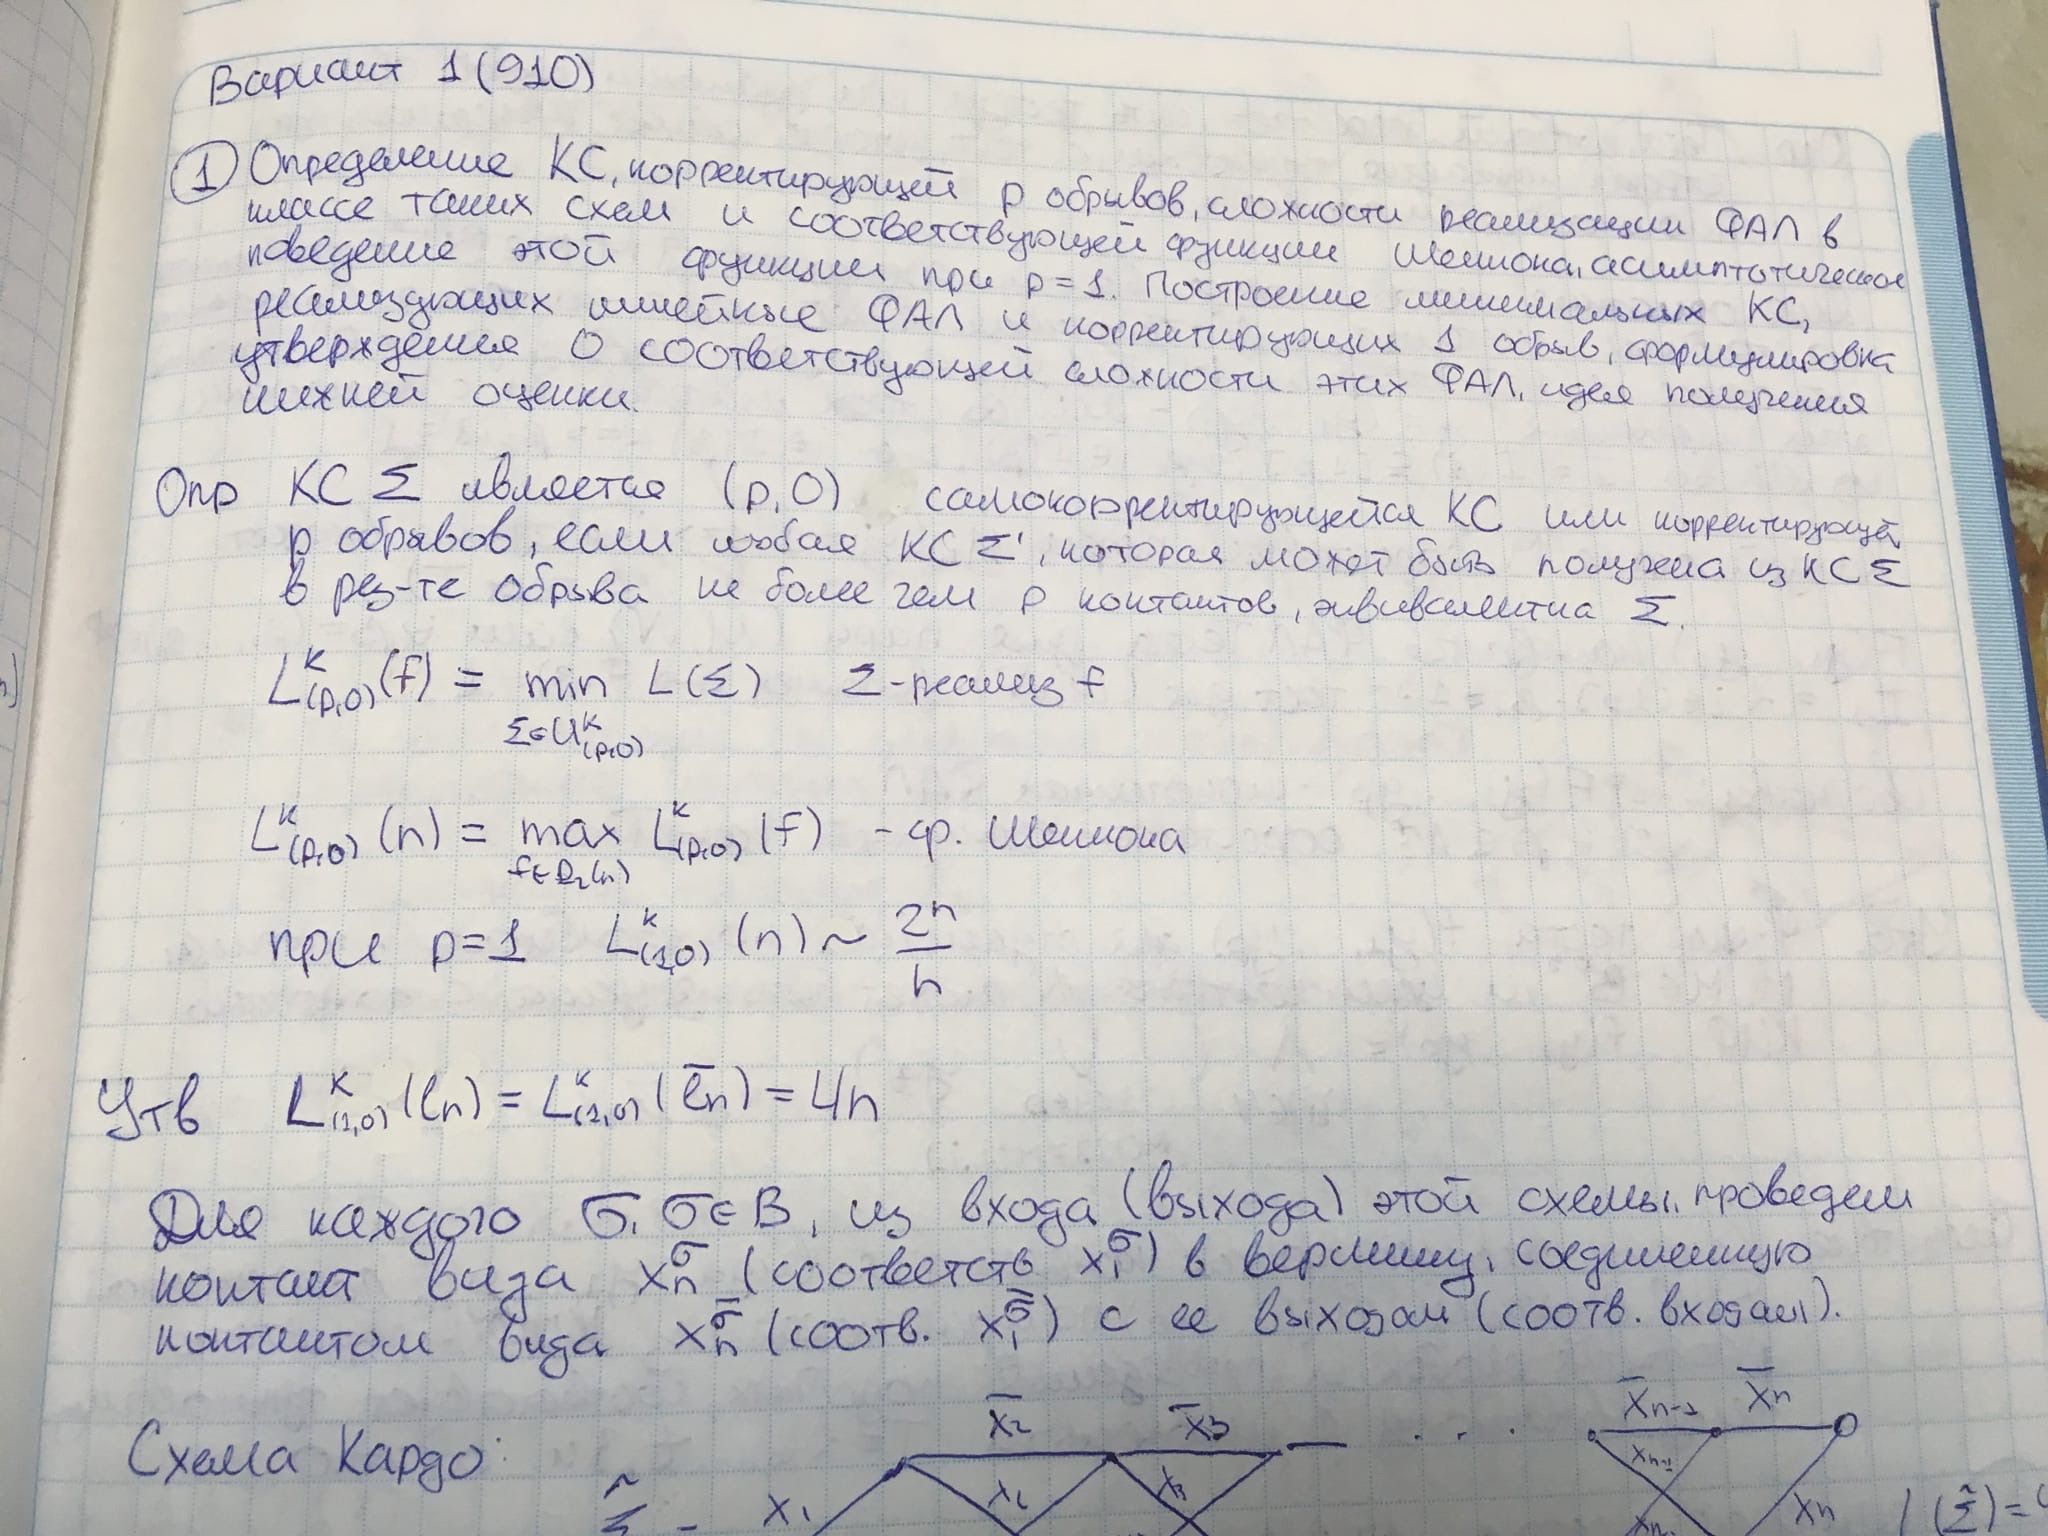 Вариант 1 (910)
① Определение КС, корректирующей p обрывов, сложности реализации ФАЛ в
классе таких схем и соответствующей функции Шеннона, асимптотическое
поведение этой функции при p=1. Построение минимальных КС,
реализующих линейные ФАЛ и корректирующих 1 обрыв, формулировка
утверждения о соответствующей сложности этих ФАЛ, идея получения
нижней оценки.
Опр КС Σ является (p,0) самокорректирующейся КС или корректирующей
p обрывов, если любая КС Σ', которая может быть получена из КС Σ
в рез-те обрыва не более чем p контактов, эквивалентна Σ.
L^K_(p,0) (f) = min_{Σ∈U^K_(p,0)} L(Σ) Σ-реализ f
L^K_(p,0) (n) = max_{f∈P₂(n)} L^K_(p,0) (f) - ф. Шеннона
при p=1 L^K_(1,0) (n) ~ 2ⁿ/n
Утв L^K_(1,0) (ln) = L^K_(1,0) (l̄n) = 4n
Для каждого σ, σ∈B, из входа (выхода) этой схемы, проведем
контакт вида xₙ^σ (соответств x₁^σ) в вершину, соединенную
контактом вида xₙ^σ̄ (соотв. x₁^σ̄) с ее выходом (соотв. входом).
Схема Кардо:
x̄₂ x̄₃ . . . x̄ₙ₋₁ x̄ₙ
x₂ x₃ xₙ₋₁
Σ̃ - x₁ xₙ